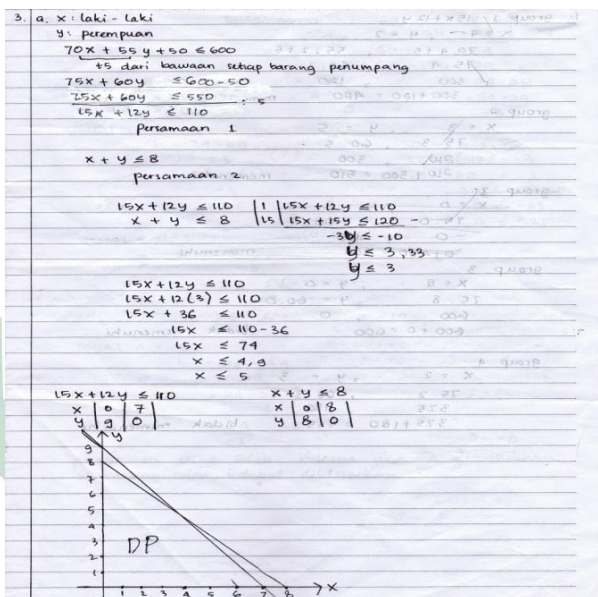 3. a. x : laki - laki
y : perempuan
70x + 55y + 50 ≤ 600
+5 dari bawaan setiap barang penumpang
75x + 60y ≤ 600 - 50
75x + 60y ≤ 550 : 5
15x + 12y ≤ 110
Persamaan 1
x + y ≤ 8
persamaan 2
15x + 12y ≤ 110 | 1 | 15x + 12y ≤ 110
x + y ≤ 8 | 15 | 15x + 15y ≤ 120 -
-3y ≤ -10
y ≤ 3,33
y ≤ 3
15x + 12y ≤ 110
15x + 12(3) ≤ 110
15x + 36 ≤ 110
15x ≤ 110 - 36
15x ≤ 74
x ≤ 4,9
x ≤ 5
15x + 12y ≤ 110 x + y ≤ 8
x | 0 | 7 | x | 0 | 8 |
y | 9 | 0 | y | 8 | 0 |
y
9
8
7
6
5
4
3 DP
2
1
1 2 3 4 5 6 7 8 x